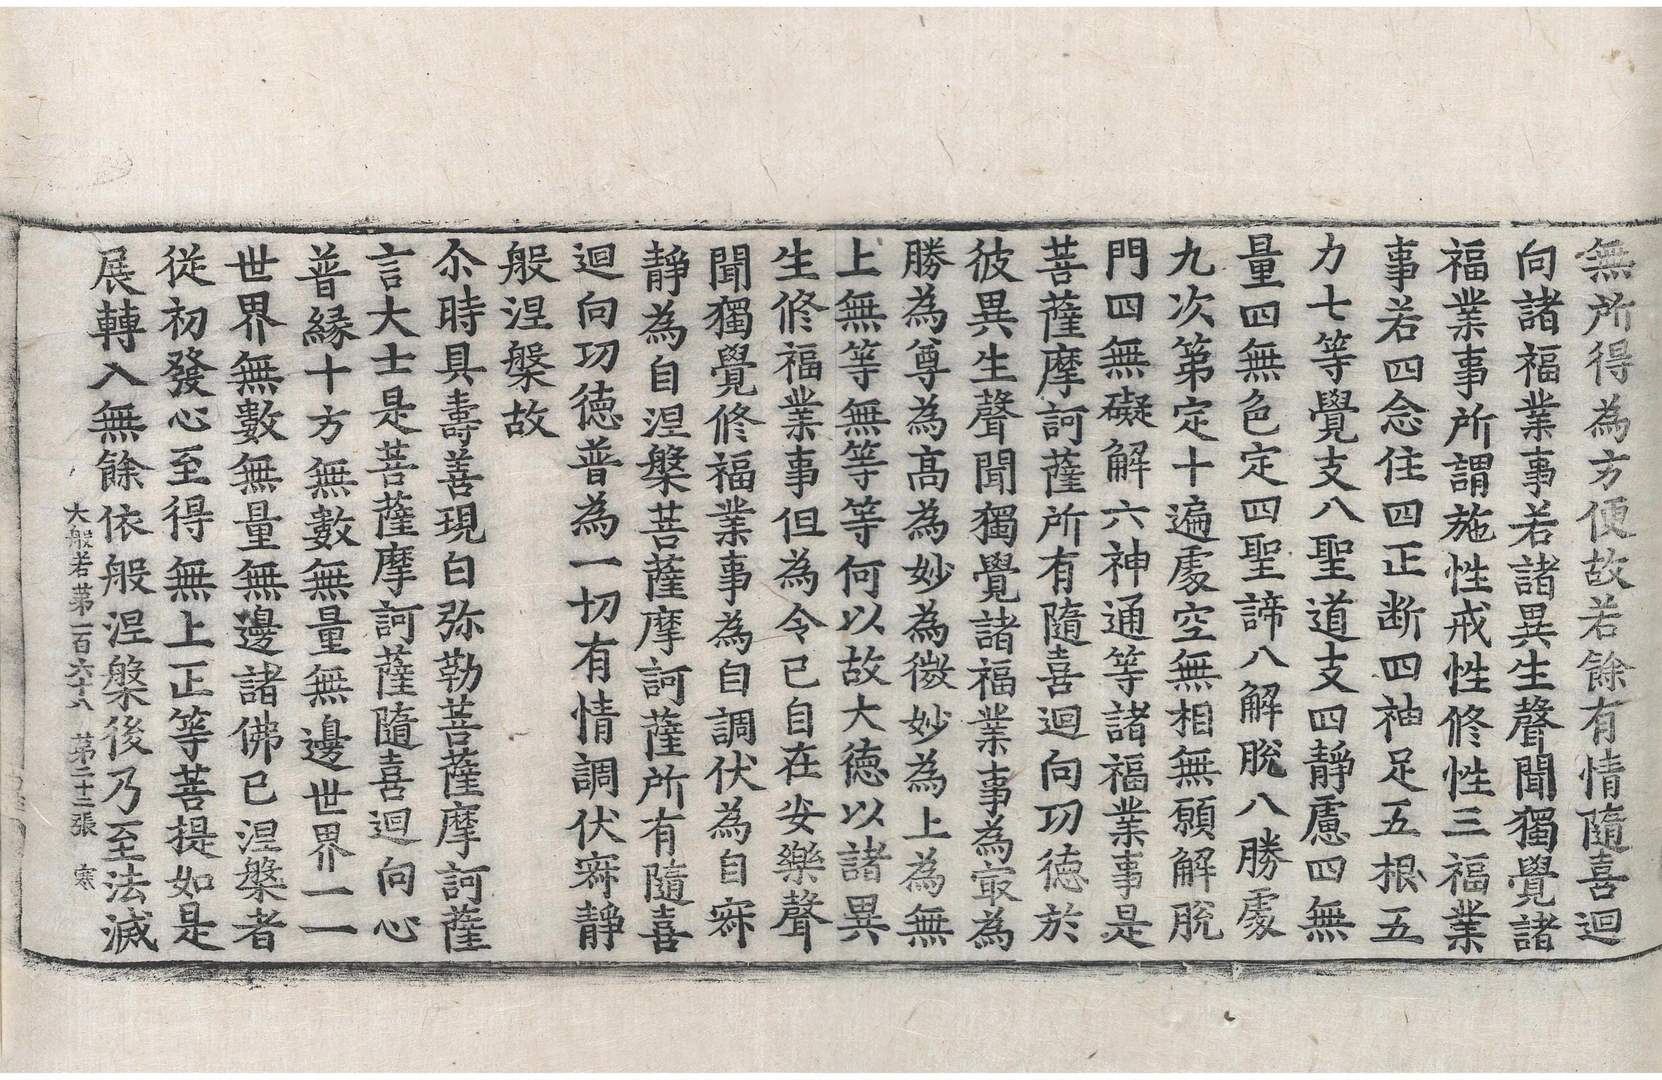 無所得為方便故若餘有情隨喜迴
向諸福業事若諸異生聲聞獨覺諸
福業事所謂施性戒性修性三福業
事若四念住四正断四神足五根五
力七等覺支八聖道支四靜慮四無
量四無色定四聖諦八解脫八勝處
九次第定十遍處空無相無願解脫
門四無礙解六神通等諸福業事是
菩薩摩訶薩所有隨喜迴向功德於
彼異生聲聞獨覺諸福業事為㝡為
勝為尊為高為妙為微妙為上為無
上無等無等等何以故大德以諸異
生修福業事但為令己自在安樂聲
聞獨覺修福業事為自調伏為自寂
靜為自涅槃菩薩摩訶薩所有隨喜
迴向功德普為一切有情調伏寂靜
般涅槃故
尒時具壽善現白弥勒菩薩摩訶薩
言大士是菩薩摩訶薩隨喜迴向心
普緣十方無數無量無邊世界一一
世界無數無量無邊諸佛已涅槃者
從初發心至得無上正等菩提如是
展轉入無餘依般涅槃後乃至法滅
大般若第一百六十八 第二十二張 寒